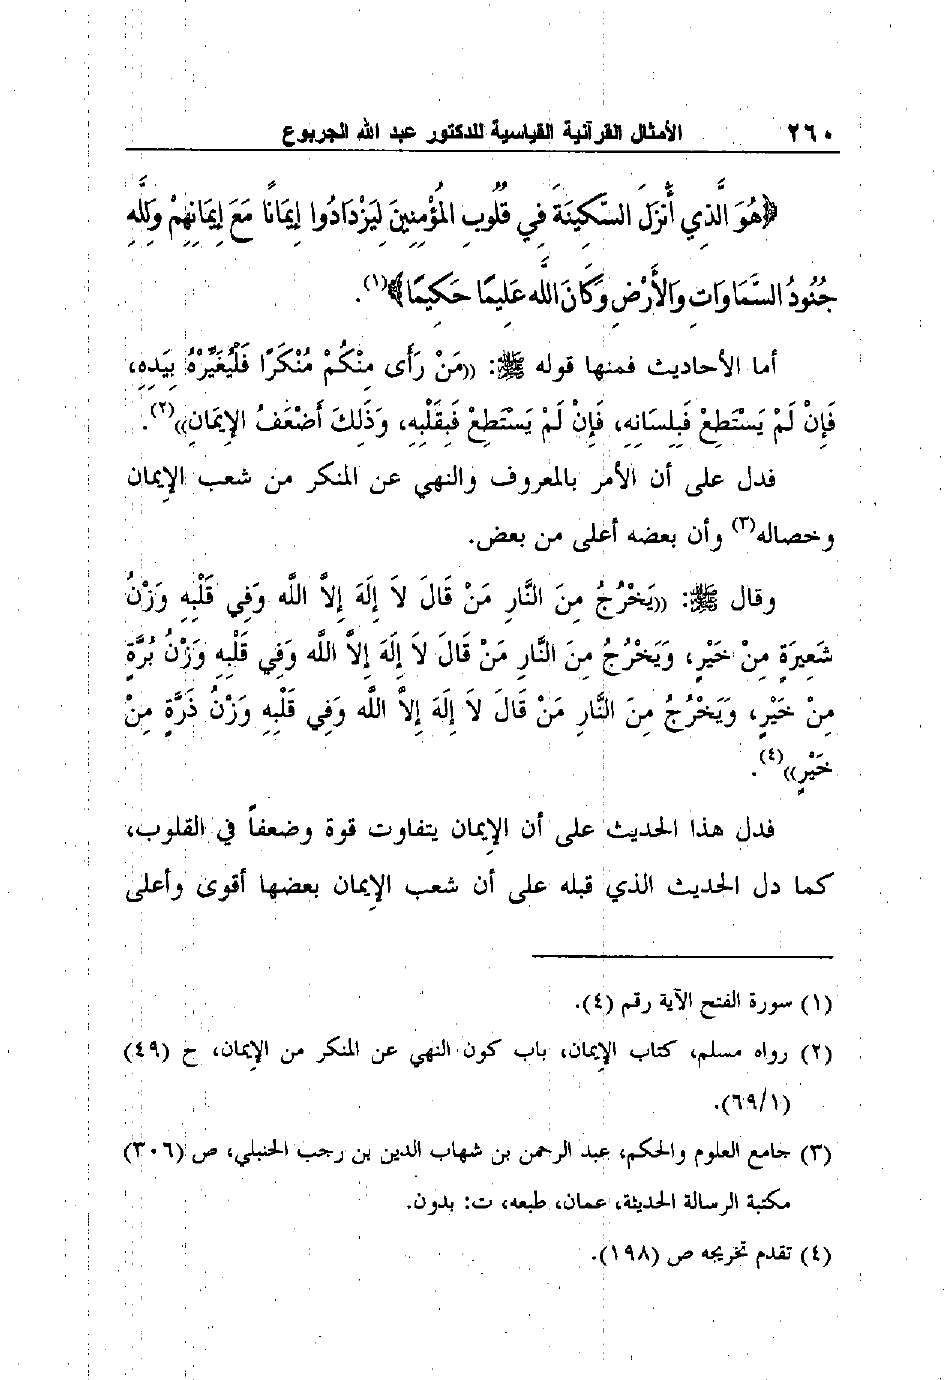 ٢٦٠ الأمثال القرآنية القياسية للدكتور عبد الله الجربوع
﴿هُوَ الَّذِي أَنْزَلَ السَّكِينَةَ فِي قُلُوبِ الْمُؤْمِنِينَ لِيَزْدَادُوا إِيمَانًا مَعَ إِيمَانِهِمْ وَلِلَّهِ
جُنُودُ السَّمَاوَاتِ وَالأَرْضِ وَكَانَ اللَّه عَلِيمًا حَكِيمًا﴾(١).
أما الأحاديث فمنها قوله ﷺ: ((مَنْ رَأَى مِنْكُمْ مُنْكَرًا فَلْيُغَيِّرْهُ بِيَدِهِ،
فَإِنْ لَمْ يَسْتَطِعْ فَبِلِسَانِهِ، فَإِنْ لَمْ يَسْتَطِعْ فَبِقَلْبِهِ، وَذَلِكَ أَضْعَفُ الإِيمَانِ))(٢).
فدل على أن الأمر بالمعروف والنهي عن المنكر من شعب الإيمان
وخصاله(٣) وأن بعضه أعلى من بعض.
وقال ﷺ: ((يَخْرُجُ مِنَ النَّارِ مَنْ قَالَ لاَ إِلَهَ إِلاَّ اللَّه وَفِي قَلْبِهِ وَزْنُ
شَعِيرَةٍ مِنْ خَيْرٍ، وَيَخْرُجُ مِنَ النَّارِ مَنْ قَالَ لاَ إِلَهَ إِلاَّ اللَّه وَفِي قَلْبِهِ وَزْنُ بُرَّةٍ
مِنْ خَيْرٍ، وَيَخْرُجُ مِنَ النَّارِ مَنْ قَالَ لاَ إِلَهَ إِلاَّ اللَّه وَفِي قَلْبِهِ وَزْنُ ذَرَّةٍ مِنْ
خَيْرٍ))(٤).
فدل هذا الحديث على أن الإيمان يتفاوت قوة وضعفاً في القلوب،
كما دل الحديث الذي قبله على أن شعب الإيمان بعضها أقوى وأعلى
(١) سورة الفتح الآية رقم (٤).
(٢) رواه مسلم، كتاب الإيمان، باب كون النهي عن المنكر من الإيمان، ح (٤٩)
(٦٩/١).
(٣) جامع العلوم والحكم، عبد الرحمن بن شهاب الدين بن رجب الحنبلي، ص (٣٠٦)
مكتبة الرسالة الحديثة، عمان، طبعه، ت: بدون.
(٤) تقدم تخريجه ص (١٩٨).